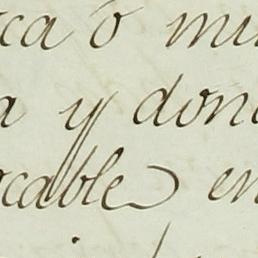 ca ó mi
a y don
cable en